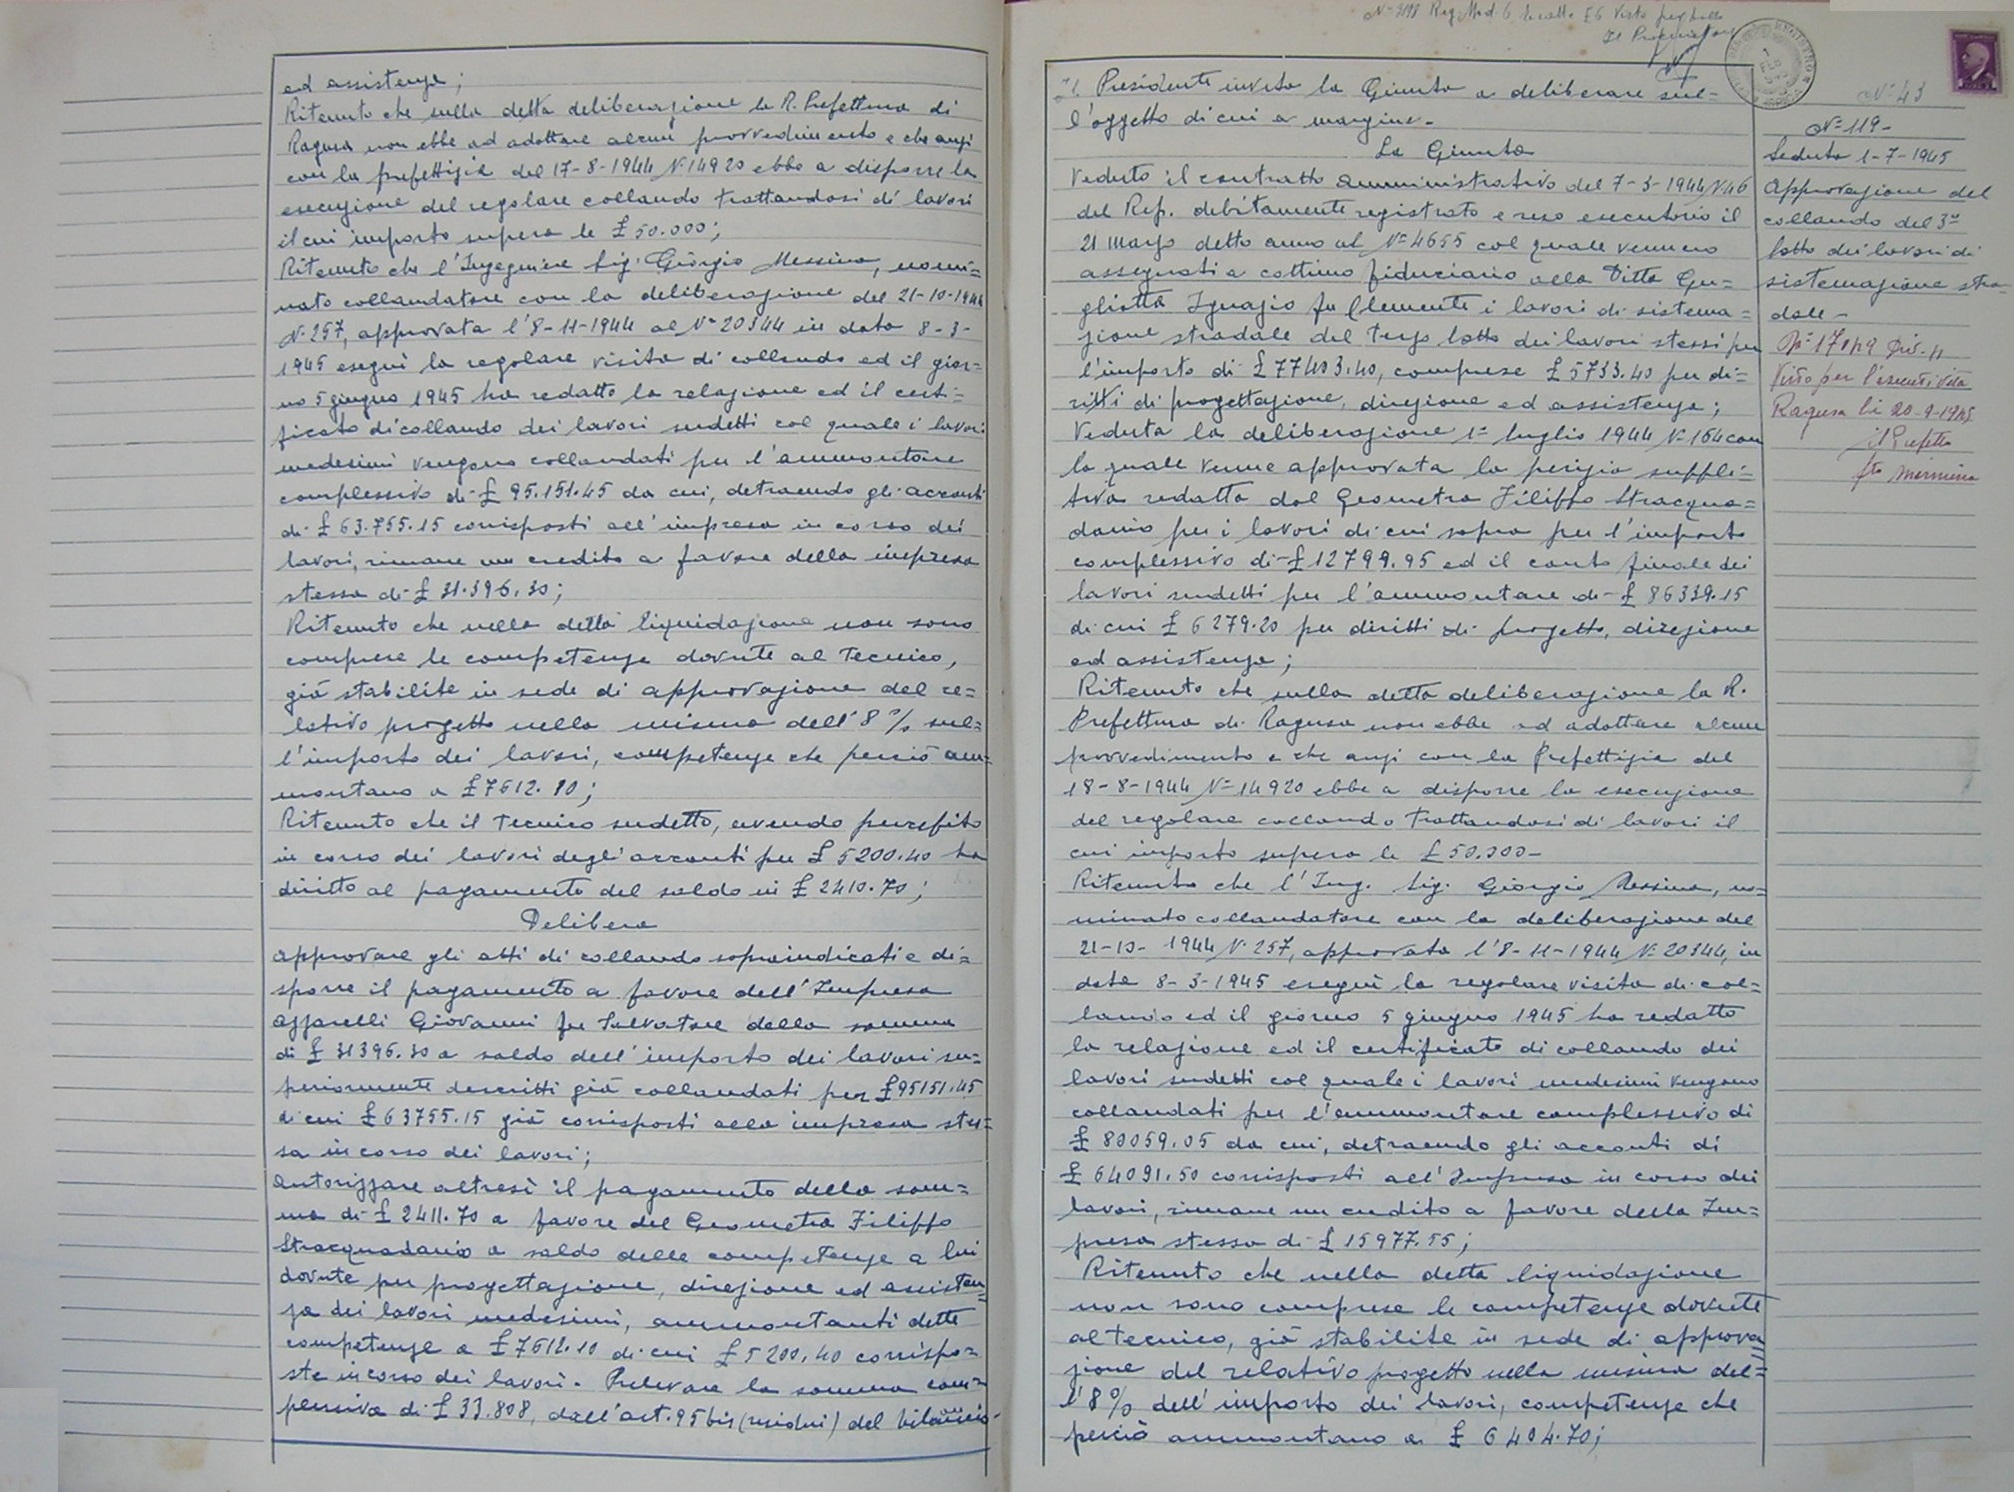 ed assistenza;
Ritenuto che sulla detta deliberazione la R. Prefettura di
Ragusa non ebbe ad adottare alcun provvedimento e che anzi
con la prefettizia del 17-8-1944 N. 14920 ebbe a disporre la
esecuzione del regolare collaudo trattandosi di lavori
il cui importo supera le £ 50.000;
Ritenuto che l'Ingegniere Sig. Giorgio Messina, nomi=
nato collaudatore con la deliberazione del 21-10-1944
N. 257, approvata l'8-11-1944 al N° 20344 in data 8-3-
1945 eseguì la regolare visita di collaudo ed il gior=
no 5 giugno 1945 ha redatto la relazione ed il certi=
ficato di collaudo dei lavori sudetti col quale i lavori
medesimi vengono collaudati per l'ammontare
complessivo di £ 95.151.45 da cui, detraendo gli acconti
di £ 63.755.15 corrisposti all'impresa in corso dei
lavori, rimane un credito a favore della impresa
stessa di £ 31.396.30;
Ritenuto che nella detta liquidazione non sono
comprese le competenze dovute al tecnico,
già stabilite in sede di approvazione del re=
lativo progetto nella misura dell'8% sul=
l'importo dei lavori, competenze che perciò am=
montano a £ 7612.10;
Ritenuto che il tecnico sudetto, avendo percepito
in corso dei lavori degli acconti per £ 5200.40 ha
diritto al pagamento del saldo in £ 2410.70;
Delibera
approvare gli atti di collaudo sopraindicati e di=
sporre il pagamento a favore dell'Impresa
Azzarelli Giovanni fu Salvatore della somma
di £ 31396.30 a saldo dell'importo dei lavori su=
periormente descritti già collaudati per £ 95151.45
di cui £ 63755.15 già corrisposti alla impresa stes=
sa in corso dei lavori;
autorizzare altresì il pagamento della som=
ma di £ 2411.70 a favore del Geometra Filippo
Stracquadanio a saldo delle competenze a lui
dovute per progettazione, direzione ed assisten=
za dei lavori medesimi, ammontanti dette
competenze a £ 7612.10 di cui £ 5200.40 corrispo=
ste in corso dei lavori. Prelevare la somma com=
plessiva di £ 33.808, dall'art. 95 bis (residui) del bilancio
N° Reg. Mod. 6 £ 6 Visto per bollo
Il Procuratore
Il Presidente invita la Giunta a deliberare sul=
l'oggetto di cui a margine.
La Giunta
Veduto il contratto amministrativo del 7-3-1944 N. 46
del Rep. debitamente registrato e reso esecutorio il
21 marzo detto anno al N° 4655 col quale vennero
assegnati a cottimo fiduciario alla Ditta Gu=
gliotta Ignazio fu Clemente i lavori di sistema=
zione stradale del terzo lotto dei lavori stessi per
l'importo di £ 77403.40, comprese £ 5733.40 per di=
ritti di progettazione, direzione ed assistenza;
Veduta la deliberazione 1° luglio 1944 N° 164 con
la quale venne approvata la perizia supple=
tiva redatta dal Geometra Filippo Stracqua=
danio per i lavori di cui sopra per l'importo
complessivo di £ 12799.95 ed il conto finale dei
lavori sudetti per l'ammontare di £ 86339.15
di cui £ 6279.20 per diritti di progetto, direzione
ed assistenza;
Ritenuto che sulla detta deliberazione la R.
Prefettura di Ragusa non ebbe ad adottare alcun
provvedimento e che anzi con la Prefettizia del
18-8-1944 N° 14920 ebbe a disporre la esecuzione
del regolare collaudo trattandosi di lavori il
cui importo supera le £ 50.000-
Ritenuto che l'Ing. Sig. Giorgio Messina, no=
minato collaudatore con la deliberazione del
21-10-1944 N. 257, approvata l'8-11-1944 N. 20344, in
data 8-3-1945 eseguì la regolare visita di col=
laudo ed il giorno 5 giugno 1945 ha redatto
la relazione ed il certificato di collaudo dei
lavori sudetti col quale i lavori medesimi vengono
collaudati per l'ammontare complessivo di
£ 80059.05 da cui, detraendo gli acconti di
£ 64091.50 corrisposti all'Impresa in corso dei
lavori, rimane un credito a favore della Im=
presa stessa di £ 15977.55;
Ritenuto che nella detta liquidazione
non sono comprese le competenze dovute
al tecnico, già stabilite in sede di approva=
zione del relativo progetto nella misura del=
l'8% dell'importo dei lavori, competenze che
perciò ammontano a £ 6404.70;
N° 43
N° 119-
Seduta 1-7-1945
Approvazione del
collaudo del 3°
lotto dei lavori di
sistemazione stra=
dale-
Div. II
Visto per l'esecutività
Ragusa li 20-9-1945
il Prefetto